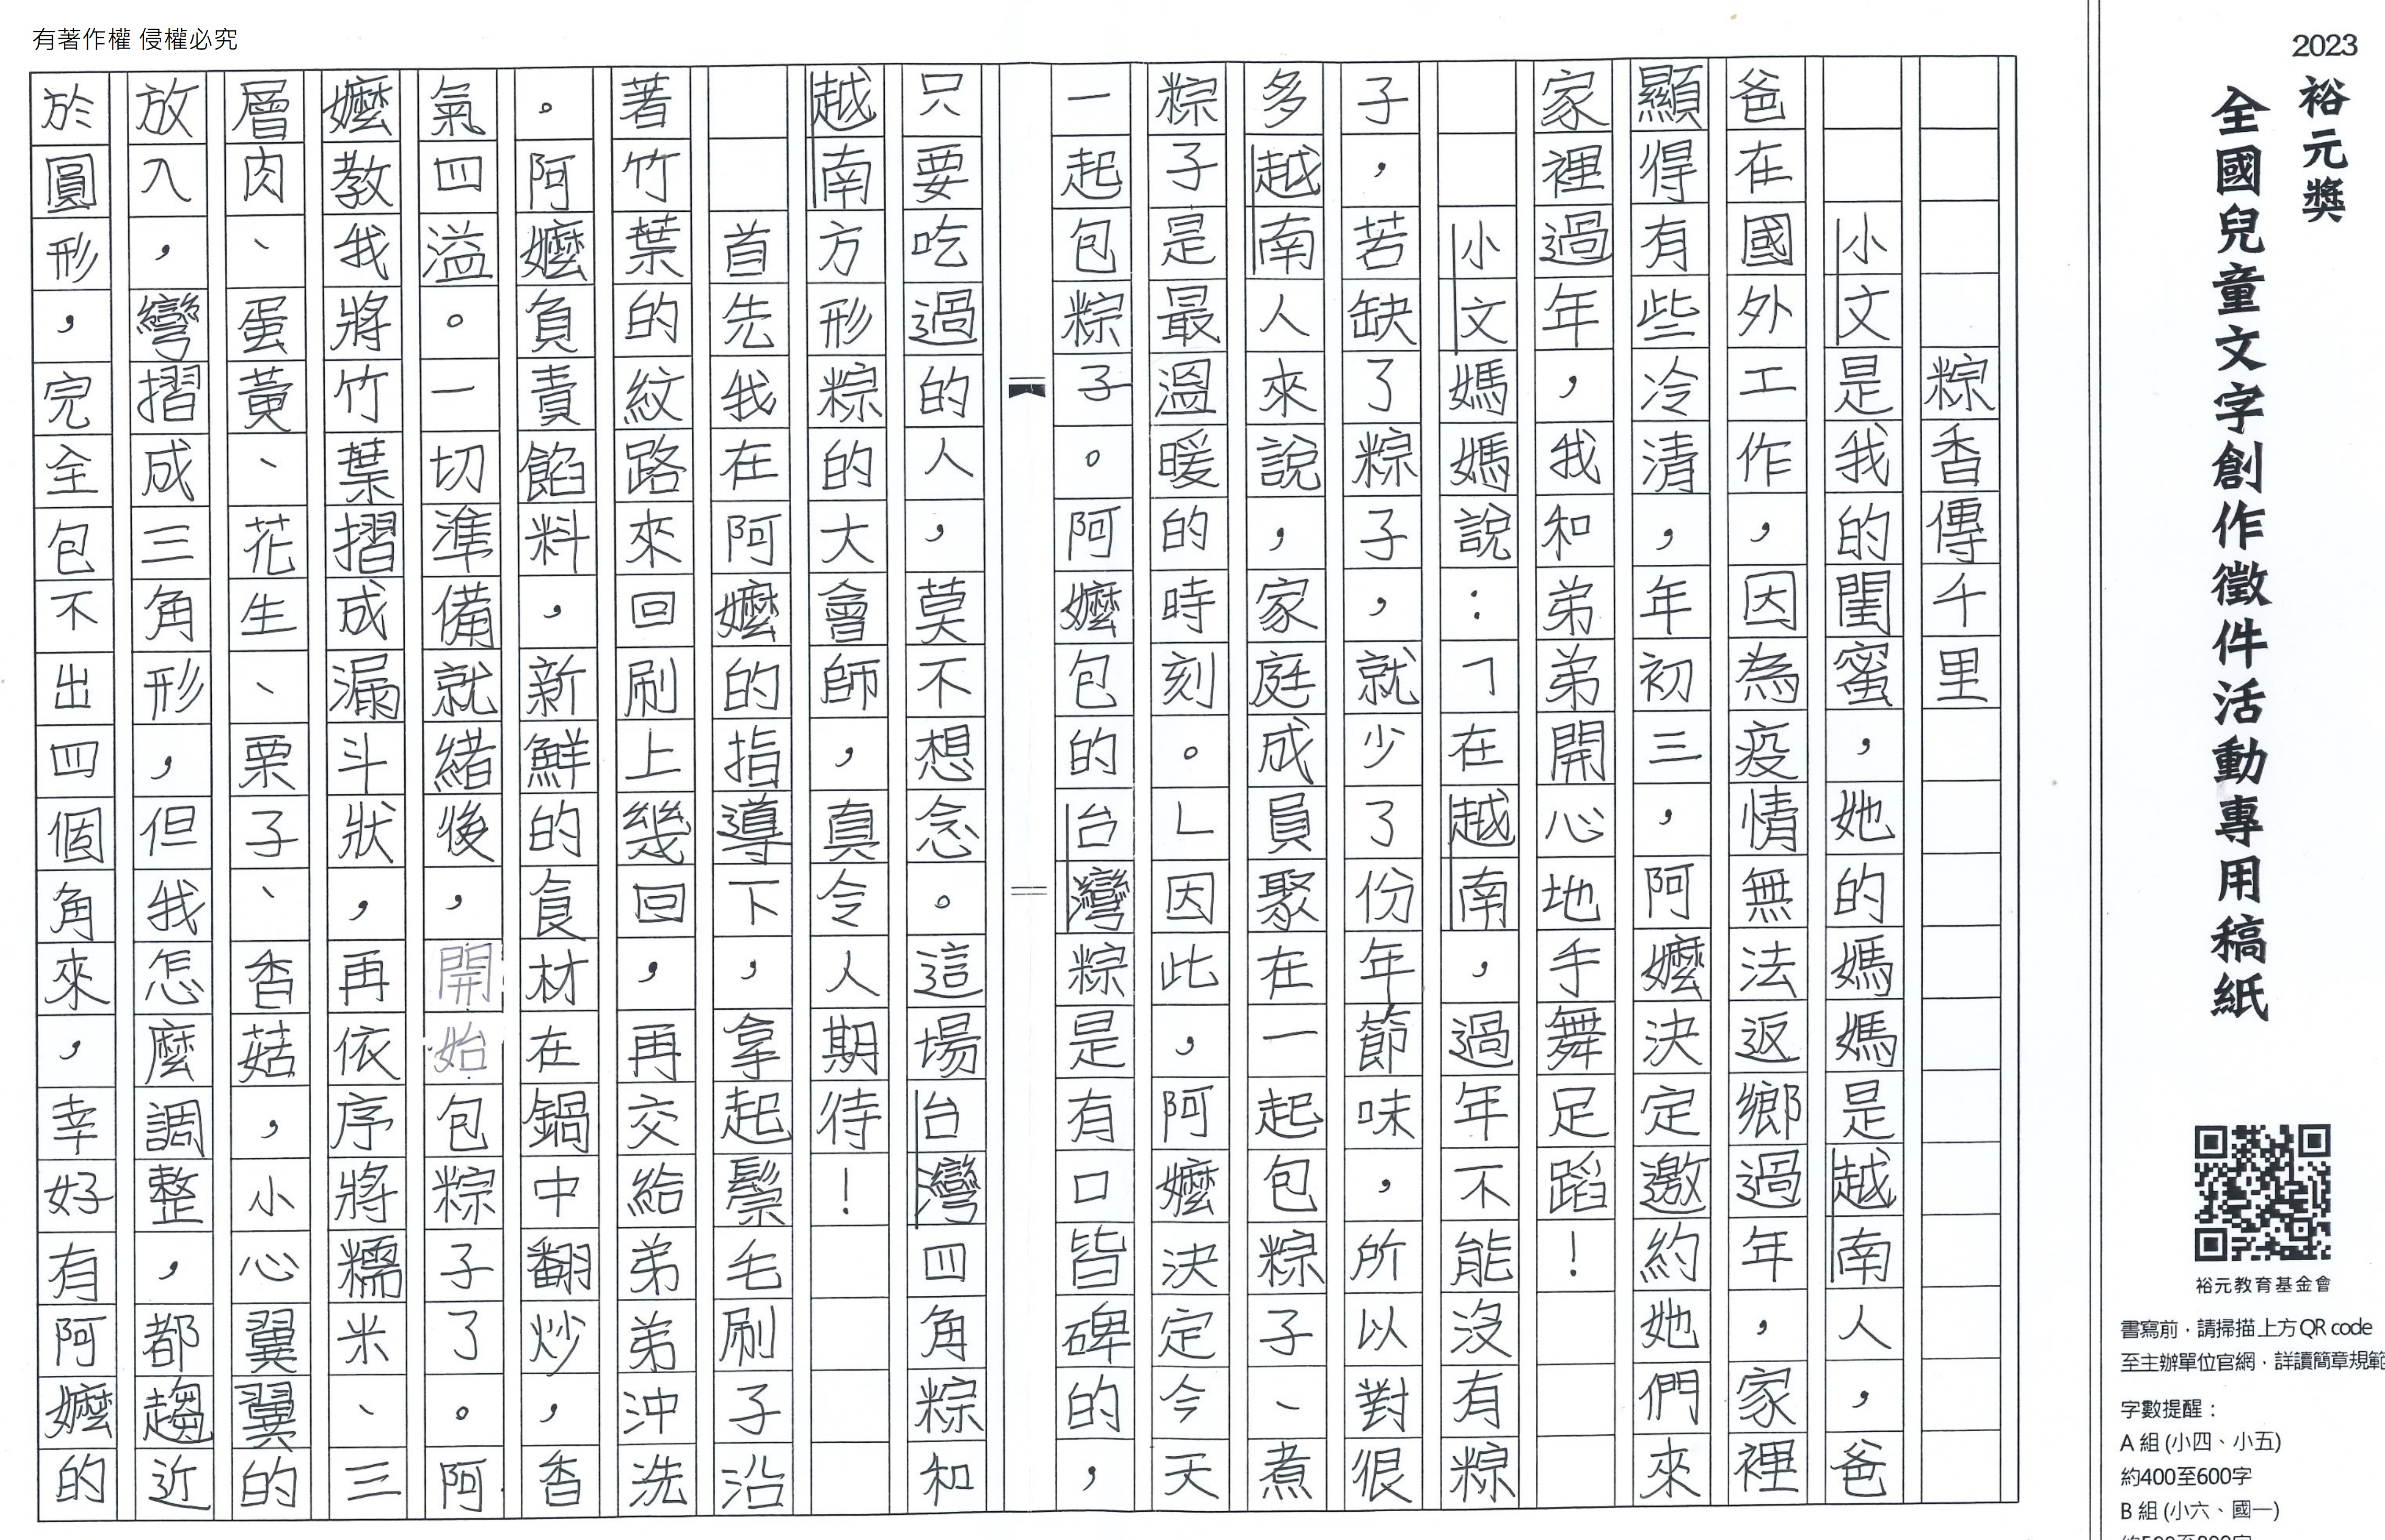 有著作權 侵權必究
2023
裕元獎
全國兒童文字創作徵件活動專用稿紙
裕元教育基金會
書寫前，請掃描上方QR code
至主辦單位官網，詳讀簡章規範
字數提醒：
A 組 (小四、小五)
約400至600字
B 組 (小六、國一)
粽香傳千里
小文是我的閨蜜，她的媽媽是越南人，爸
爸在國外工作，因為疫情無法返鄉過年，家裡
顯得有些冷清，年初三，阿嬤決定邀約她們來
家裡過年，我和弟弟開心地手舞足蹈！
小文媽媽說：「在越南，過年不能沒有粽
子，若缺了粽子，就少了份年節味，所以對很
多越南人來說，家庭成員聚在一起包粽子、煮
粽子是最溫暖的時刻。」因此，阿嬤決定今天
一起包粽子。阿嬤包的台灣粽是有口皆碑的，
只要吃過的人，莫不想念。這場台灣四角粽和
越南方形粽的大會師，真令人期待！
首先我在阿嬤的指導下，拿起鬃毛刷子沿
著竹葉的紋路來回刷上幾回，再交給弟弟沖洗
。阿嬤負責餡料，新鮮的食材在鍋中翻炒，香
氣四溢。一切準備就緒後，開始包粽子了。阿
嬤教我將竹葉摺成漏斗狀，再依序將糯米、三
層肉、蛋黃、花生、栗子、香菇，小心翼翼的
放入，彎摺成三角形，但我怎麼調整，都趨近
於圓形，完全包不出四個角來，幸好有阿嬤的